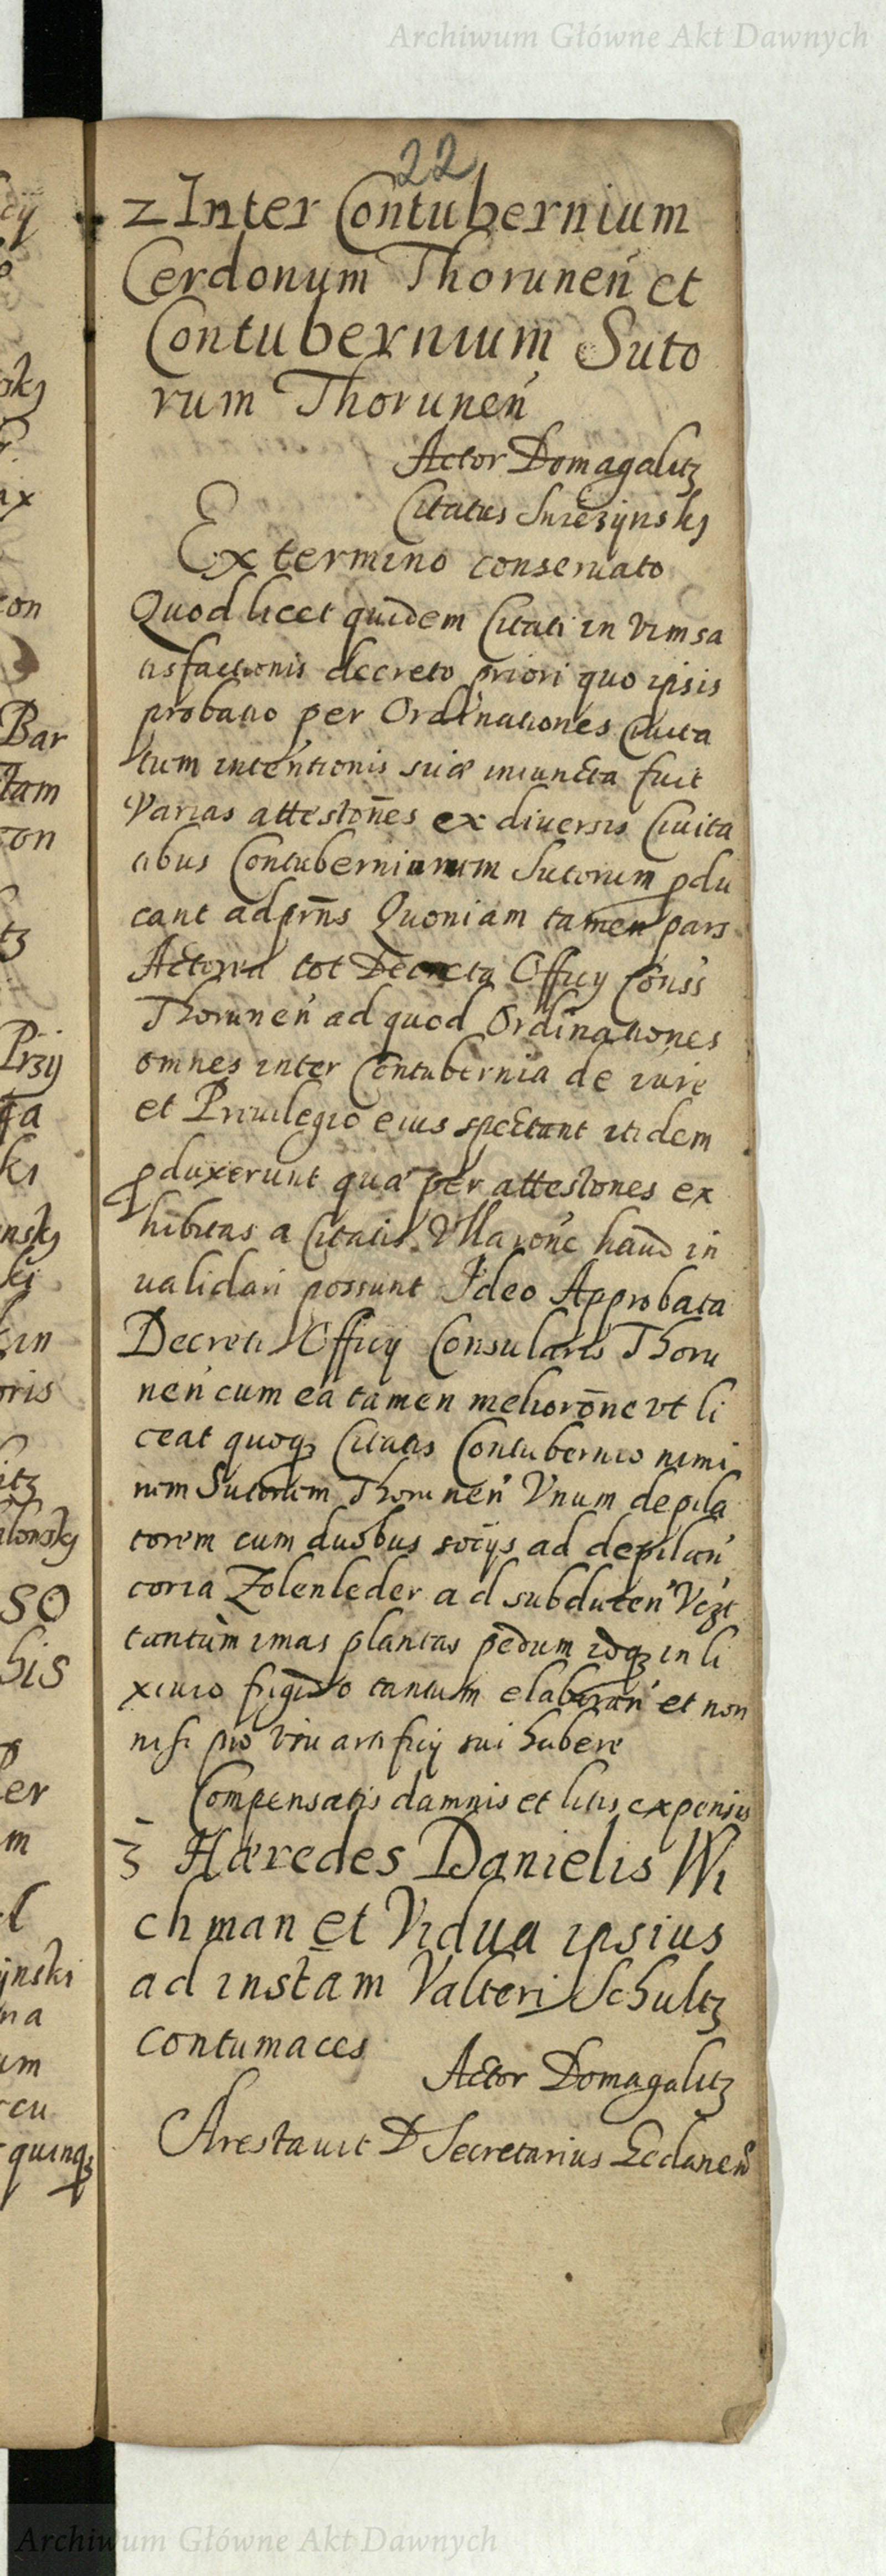 Archiwum Główne Akt Dawnych
22
2 Inter Contubernium
Cerdonum Thorunen et
Contubernium Suto
rum Thorunen
Actor Domagalitz
Citatus
Ex termino conseruato
Quod licet quidem Citati in vim sa
tisfactionis decreto priori quo ipsis
probatio per Ordinationes Ciuita
tum intentionis suæ iniuncta fuit
Varias attestones ex diuersis Ciuita
tibus Contuberniorum Sutorum pdu
cant ad prns Quoniam tamen pars
Actorea tot Decreta Officij Conss
Thorunen ad quod Ordinationes
omnes inter Contubernia de iure
et Priuilegio eius spectant itidem
pduxerunt quæ per attestones ex
hibitas a Citatis Vlla rone haud in
ualidari possunt Ideo Approbata
Decreti Officij Consularis Thoru
nen cum ea tamen meliorone vt li
ceat quoqz Citatis Contubernio nimi
rum Sutorum Thorunen Vnum depila
torem cum duobus socijs ad depilan
coria Zolenleder ad subducen Vczt
tantum imas plantas pedum idqz in li
xiuio frigido tantum elaboran et non
nisi pro vsu artificij sui habere
Compensatis damnis et litis expensis
3 Hæredes Danielis Wi
chman et Vidua ipsius
ad instam Valteri Schultz
contumaces
Actor Domagalitz
Arestauit D Secretarius
Archiwum Główne Akt Dawnych